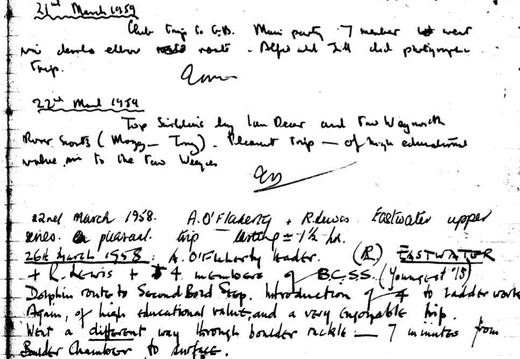 21st March 1959
Club trip to G.B. Main party 7 member went
via devils elbow route. Alfie and Jill did photographic
trip.
22nd March 1959
Top Swildons by Ian Dear and Two Weymouth
River Scouts (Moggy – Tony). Pleasant trip – of high educational
value, viz to the Two Weyites
22nd March 1958. A. O'Flaherty + R. Lewis. Eastwater upper
series. pleasant trip lasting = 1½ hr.
26th March 1958 A. O'Flaherty leader. (R) EASTWATER
+ R. Lewis + 4 members of B.C.S.S. (Youngest 15)
Dolphin route to Second Bold Step. Introduction of 4 to ladder work
Again, of high educational value, and a very enjoyable trip.
Went a different way through boulder ruckle – 7 minutes from
Boulder Chamber to surface.